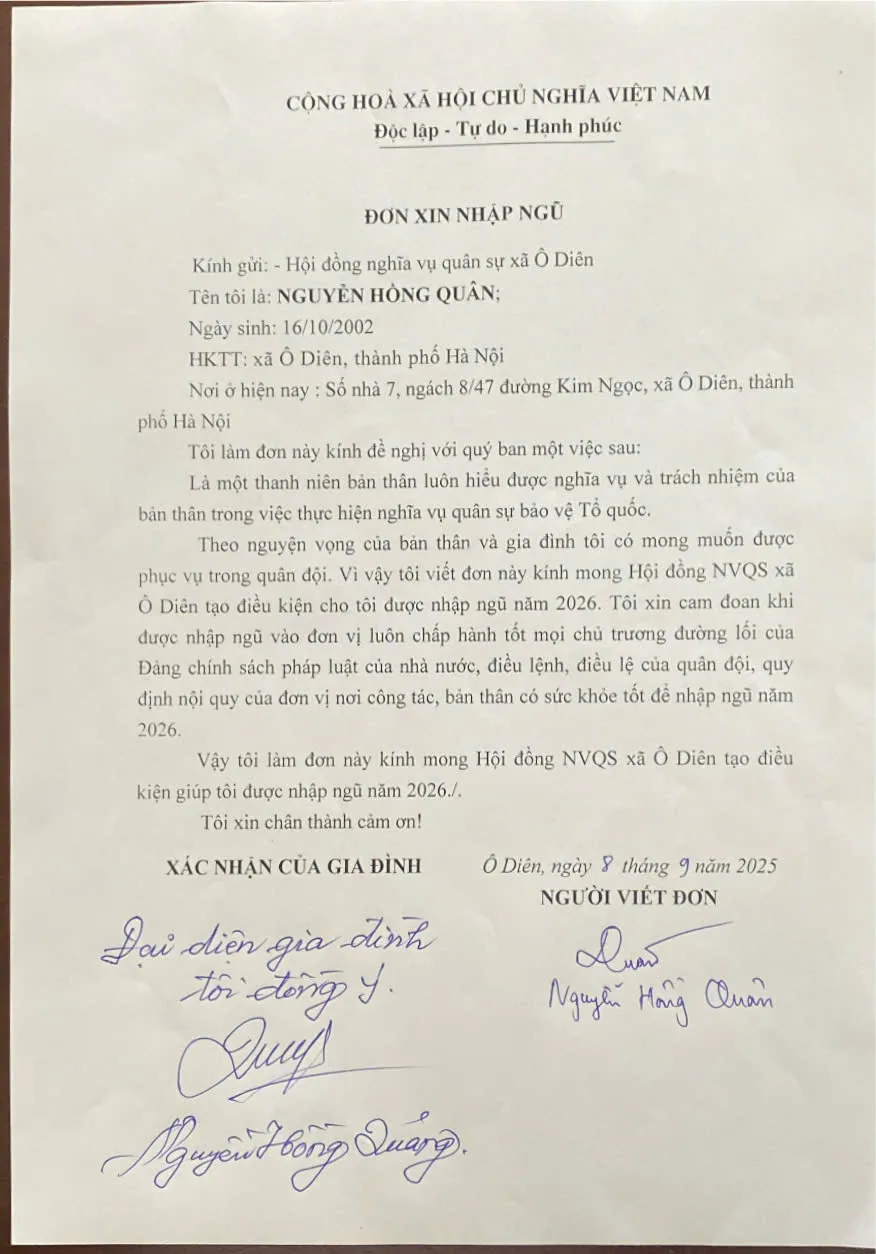 CỘNG HOÀ XÃ HỘI CHỦ NGHĨA VIỆT NAM
Độc lập - Tự do - Hạnh phúc
ĐƠN XIN NHẬP NGŨ
Kính gửi: - Hội đồng nghĩa vụ quân sự xã Ô Diên
Tên tôi là: NGUYỄN HỒNG QUÂN;
Ngày sinh: 16/10/2002
HKTT: xã Ô Diên, thành phố Hà Nội
Nơi ở hiện nay : Số nhà 7, ngách 8/47 đường Kim Ngọc, xã Ô Diên, thành
phố Hà Nội
Tôi làm đơn này kính đề nghị với quý ban một việc sau:
Là một thanh niên bản thân luôn hiểu được nghĩa vụ và trách nhiệm của
bản thân trong việc thực hiện nghĩa vụ quân sự bảo vệ Tổ quốc.
Theo nguyện vọng của bản thân và gia đình tôi có mong muốn được
phục vụ trong quân đội. Vì vậy tôi viết đơn này kính mong Hội đồng NVQS xã
Ô Diên tạo điều kiện cho tôi được nhập ngũ năm 2026. Tôi xin cam đoan khi
được nhập ngũ vào đơn vị luôn chấp hành tốt mọi chủ trương đường lối của
Đảng chính sách pháp luật của nhà nước, điều lệnh, điều lệ của quân đội, quy
định nội quy của đơn vị nơi công tác, bản thân có sức khỏe tốt để nhập ngũ năm
2026.
Vậy tôi làm đơn này kính mong Hội đồng NVQS xã Ô Diên tạo điều
kiện giúp tôi được nhập ngũ năm 2026./.
Tôi xin chân thành cảm ơn!
XÁC NHẬN CỦA GIA ĐÌNH
Đại diện gia đình
tôi đồng ý.
Nguyễn Hồng Quảng.
Ô Diên, ngày 8 tháng 9 năm 2025
NGƯỜI VIẾT ĐƠN
Quân
Nguyễn Hồng Quân